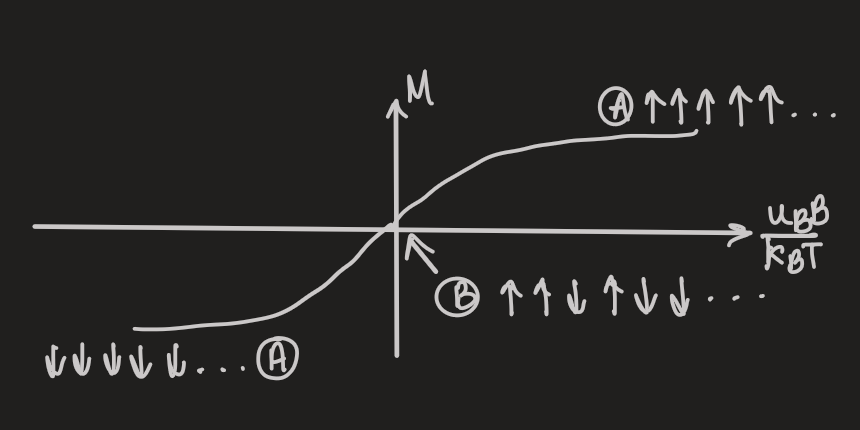 M
Ⓐ ↑ ↑ ↑ ↑ ↑ . . .
u_B B
k_B T
Ⓑ ↑ ↑ ↓ ↑ ↓ ↓ . . . .
↓ ↓ ↓ ↓ ↓ . . . Ⓐ